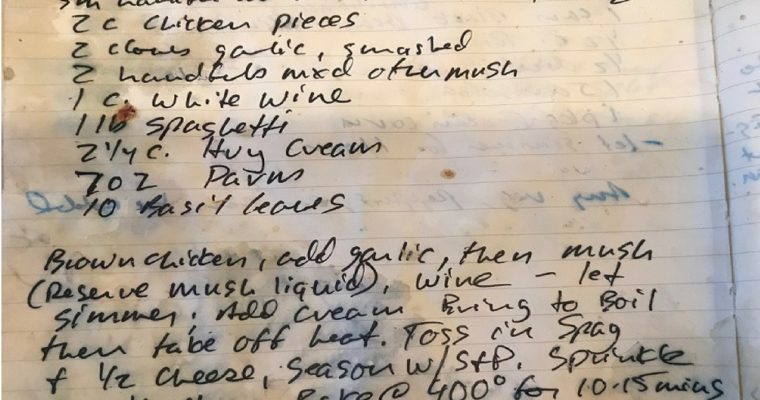 2 c chicken pieces
2 cloves garlic, smashed
2 handfuls mixd other mush
1 c. white wine
1 lb spaghetti
2 1/4 c. Hvy Cream
7 oz Parm
10 Basil leaves
Brown chicken, add garlic, then mush
(Reserve mush liquid), wine - let
simmer. Add cream Bring to Boil
then take off heat. Toss in Spag
+ 1/2 cheese, season w/ S+P. Sprinkle
Bake @ 400° for 10-15 mins